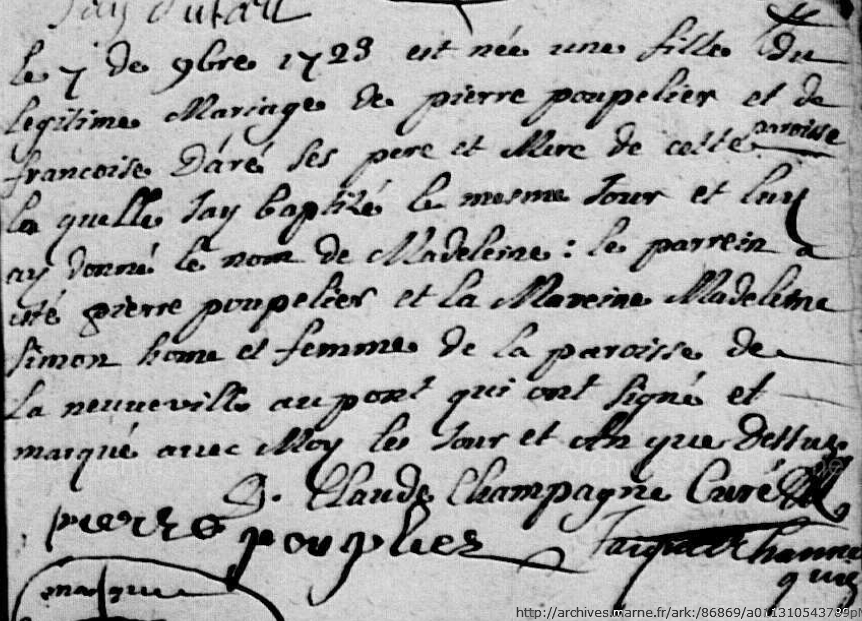 le 7 de 9bre 1723 est née une fille du
legitime Mariage de pierre poupelier et de
francoise Daré ses pere et Mere de cette paroisse
la quelle Jay baptisé le mesme Jour et luy
ay donné le nom de Madeleine : le parrein a
esté pierre poupelier et la Mareine Madeleine
simon home et femme de la paroisse de
la neuueville au pont qui ont signé et
marqué avec Moy les Jour et An que dessus
D. Claude Champagne Curé
pierre pouplier
marque
http://archives.marne.fr/ark:/86869/a011310543789